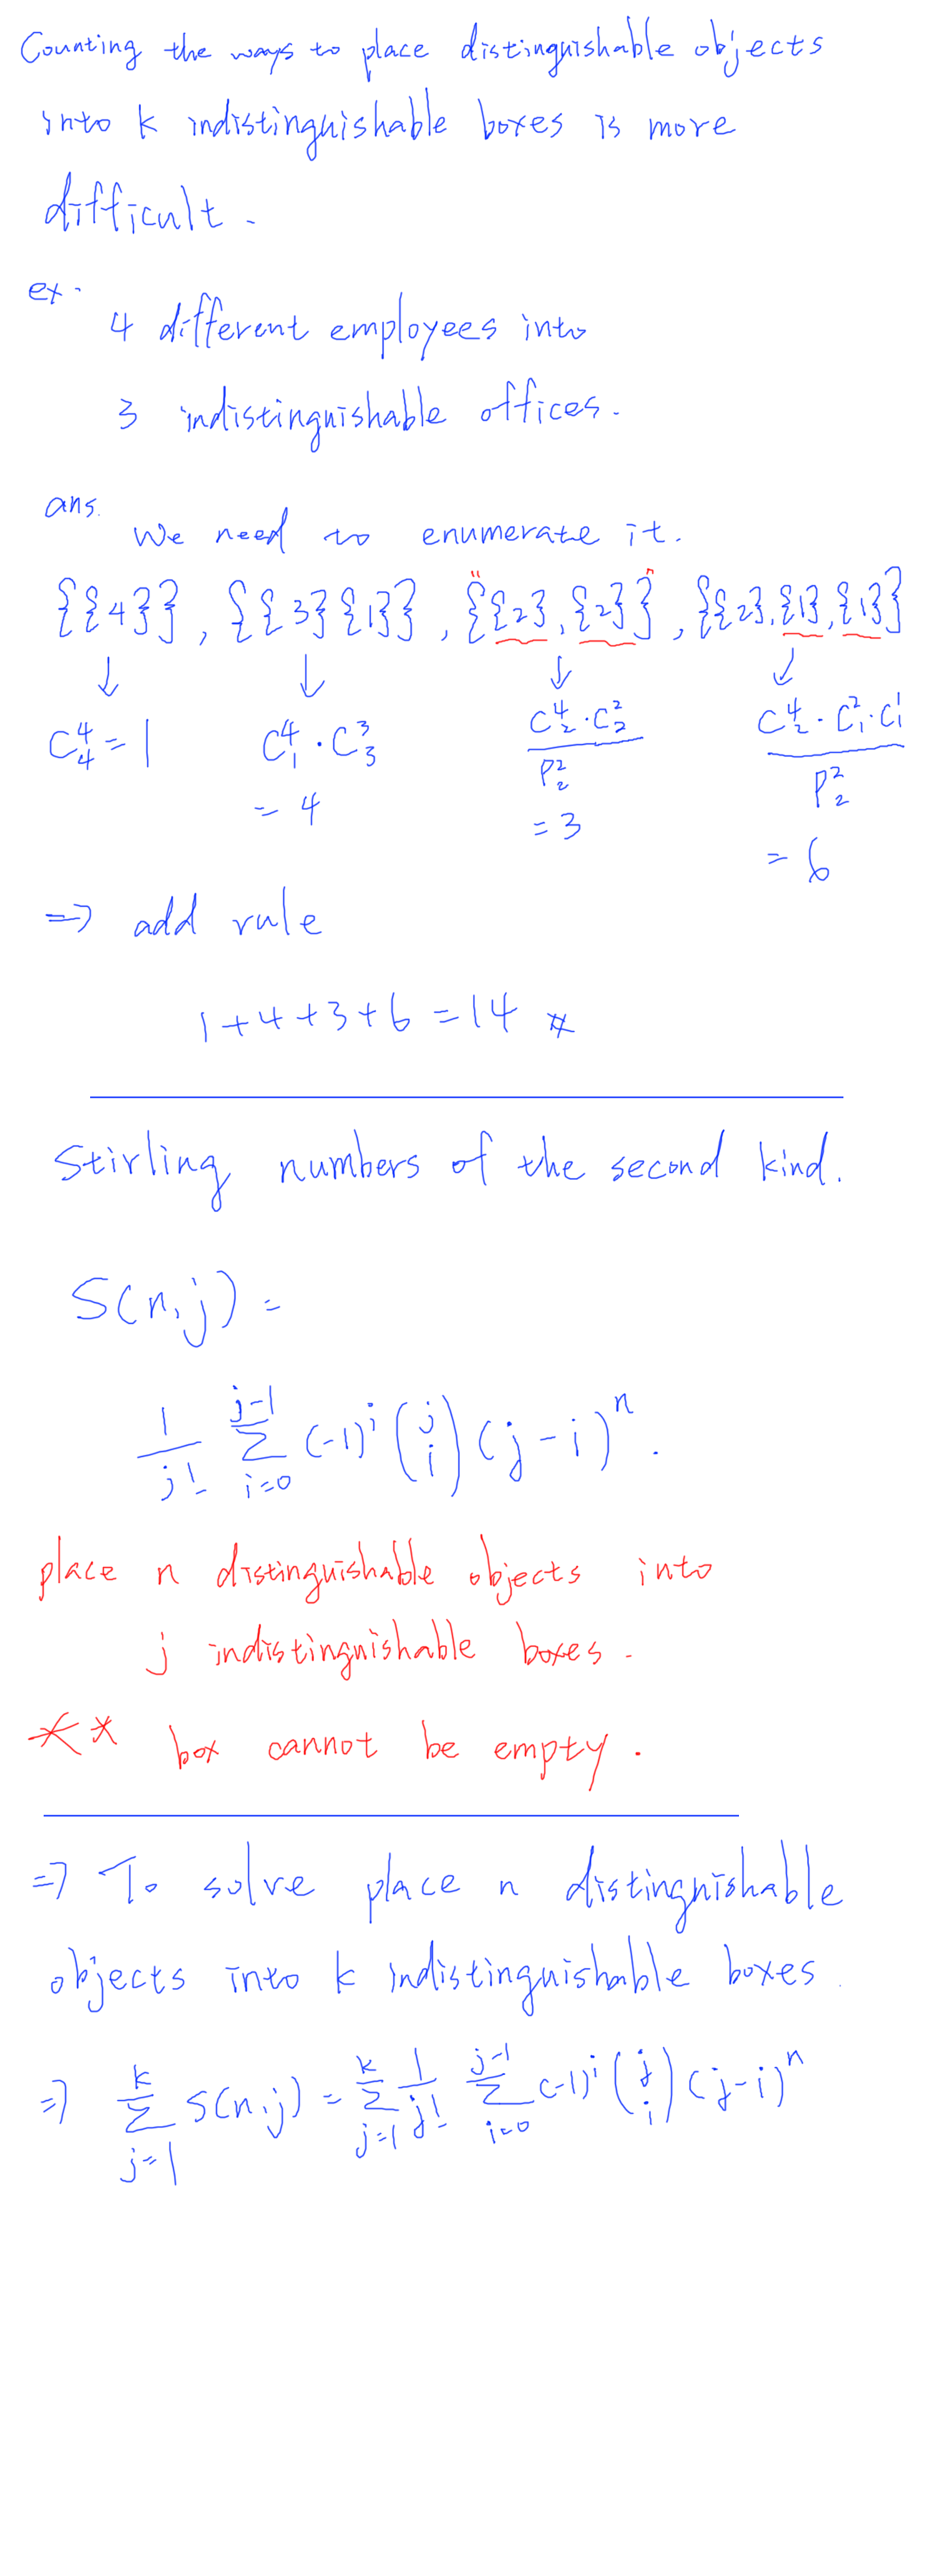 Counting the ways to place distinguishable objects
into k indistinguishable boxes is more
difficult.
ex.
4 different employees into
3 indistinguishable offices.
ans.
We need to enumerate it.
{{4}}, {{3}{1}}, "{{2},{2}}", {{2},{1},{1}}
↓ ↓ ↓ ↓
C⁴₄ = 1 C⁴₁ · C³₃ = 4 (C⁴₂ · C²₂) / P²₂ = 3 (C⁴₂ · C²₁ · C¹₁) / P²₂ = 6
⇒ add rule
1+4+3+6=14 #
Stirling numbers of the second kind.
S(n,j) =
1/j! Σ_{i=0}^{j-1} (-1)^i (j i) (j-i)^n.
place n distinguishable objects into
j indistinguishable boxes.
** box cannot be empty.
⇒ To solve place n distinguishable
objects into k indistinguishable boxes.
⇒ Σ_{j=1}^{k} S(n,j) = Σ_{j=1}^{k} 1/j! Σ_{i=0}^{j-1} (-1)^i (j i) (j-i)^n